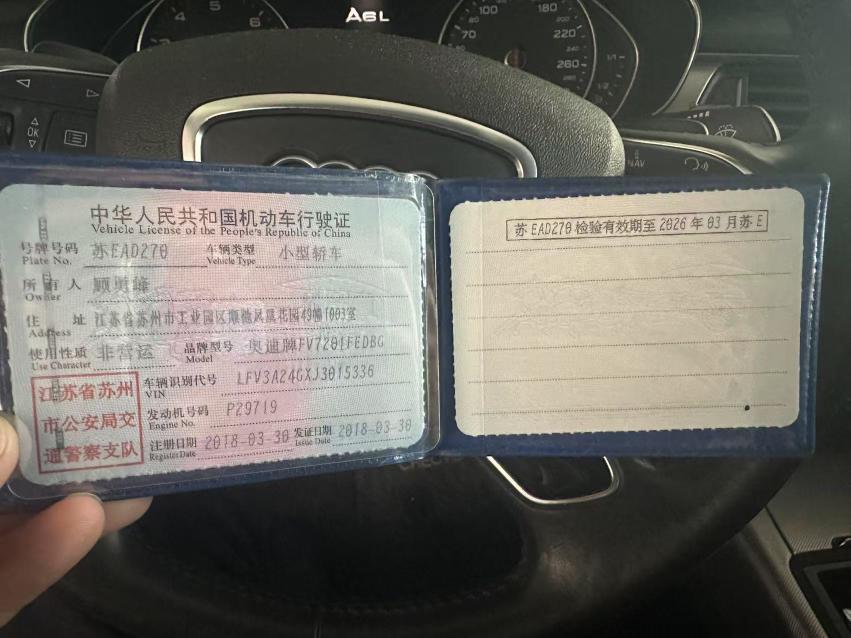 4 5 6
A6L
100 180
70 220
240
260
OK
NAV
中华人民共和国机动车行驶证
Vehicle License of the People's Republic of China
号牌号码 苏EAD270 车辆类型 小型轿车
Plate No. Vehicle Type
所有人
Owner
住址 江苏省苏州市工业园区 花园49幢1003室
Address
使用性质 非营运 品牌型号 奥迪牌FV7201FEDBG
Use Character Model
车辆识别代号 LFV3A24GXJ3015336
VIN
发动机号码 P29719
Engine No.
注册日期 2018-03-30 发证日期 2018-03-30
Register Date Issue Date
江苏省苏州
市公安局交
通警察支队
苏EAD270检验有效期至2026年03月苏E